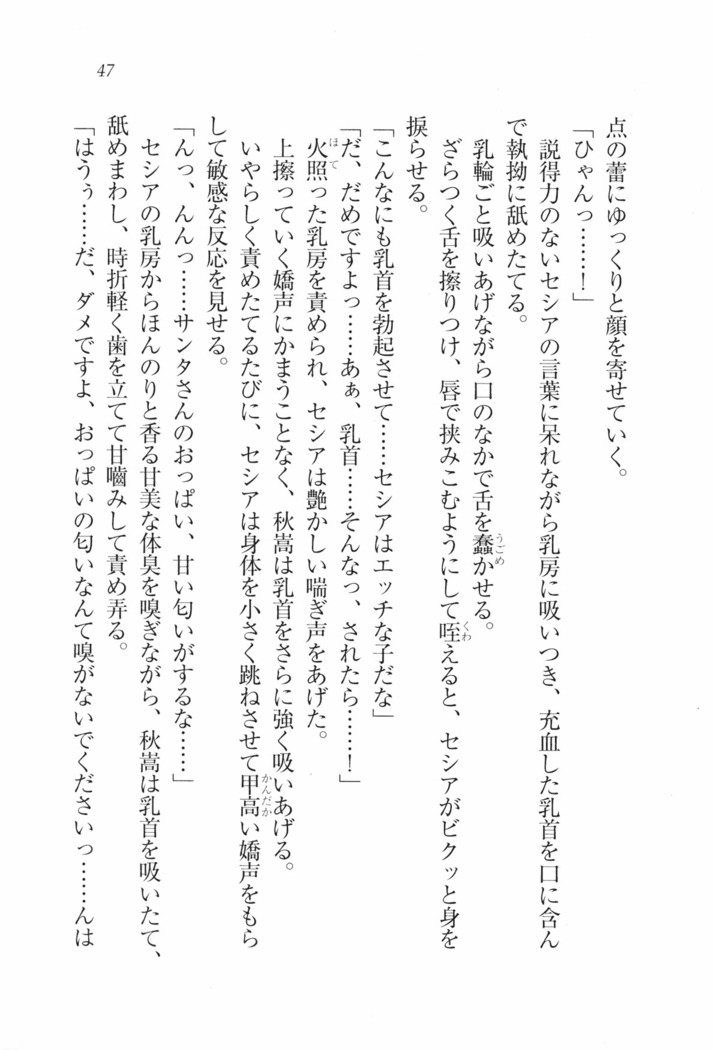 47
点の蕾にゆっくりと顔を寄せていく。
「ひゃんっ……！」
説得力のないセシアの言葉に呆れながら乳房に吸いつき、充血した乳首を口に含ん
で執拗に舐めたてる。
乳輪ごと吸いあげながら口のなかで舌を蠢かせる。
ざらつく舌を擦りつけ、唇で挟みこむようにして咥えると、セシアがビクッと身を
捩らせる。
「こんなにも乳首を勃起させて……セシアはエッチな子だな」
「だ、だめですよっ……あぁ、乳首……そんなっ、されたら……！」
火照った乳房を責められ、セシアは艶かしい喘ぎ声をあげた。
上擦っていく嬌声にかまうことなく、秋嵩は乳首をさらに強く吸いあげる。
いやらしく責めたてるたびに、セシアは身体を小さく跳ねさせて甲高い嬌声をもら
して敏感な反応を見せる。
「んっ、んんっ……サンタさんのおっぱい、甘い匂いがするな……」
セシアの乳房からほんのりと香る甘美な体臭を嗅ぎながら、秋嵩は乳首を吸いたて、
舐めまわし、時折軽く歯を立てて甘嚙みして責め弄る。
「はうぅ……だ、ダメですよ、おっぱいの匂いなんて嗅がないでくださいっ……んは